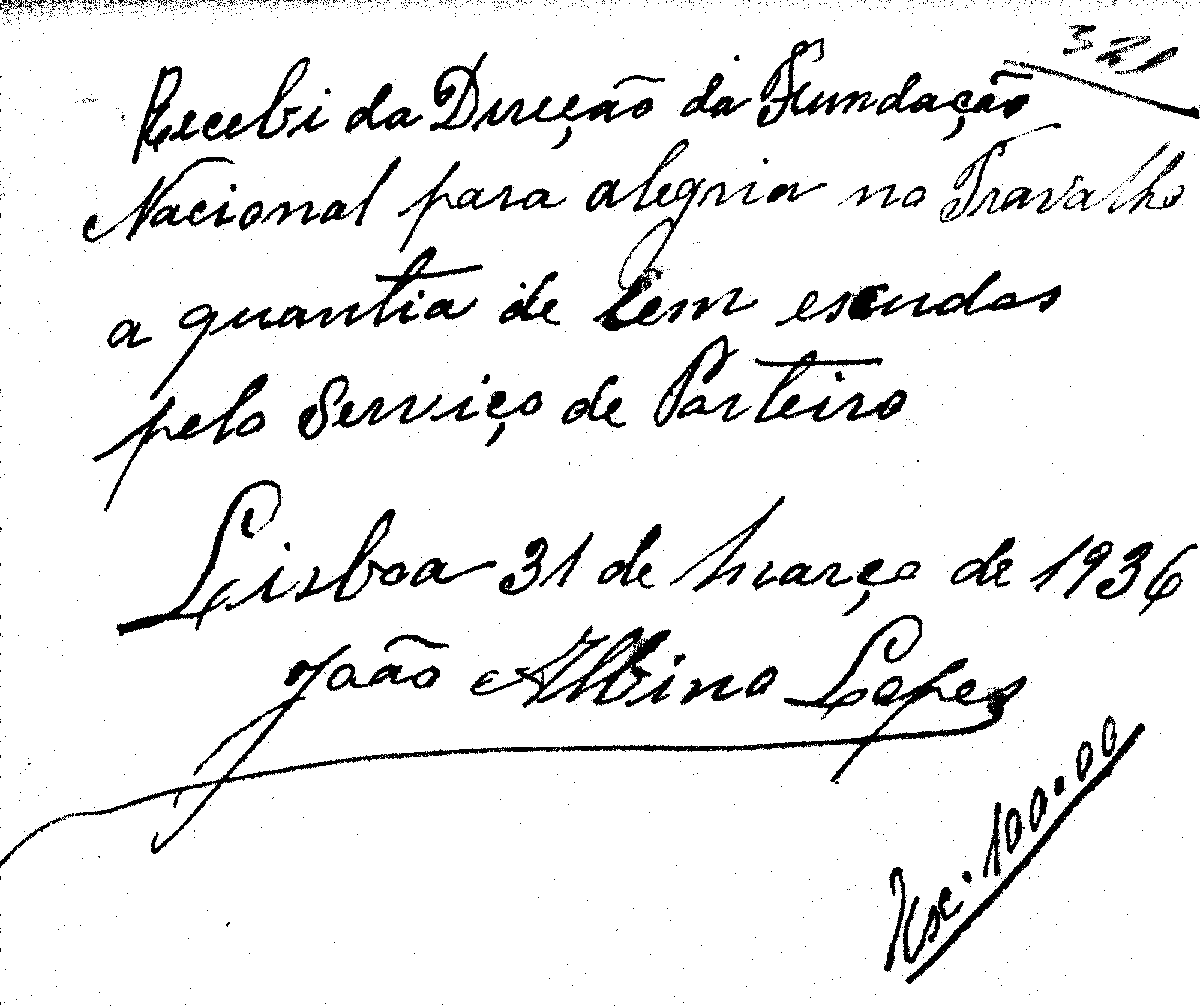 321
Recebi da Direcção da Fundação
Nacional para alegria no Travalho
a quantia de Cem escudos
pelo Serviço de Porteiro
Lisboa 31 de março de 1936
João Albino Lopes
Esc. 100.00